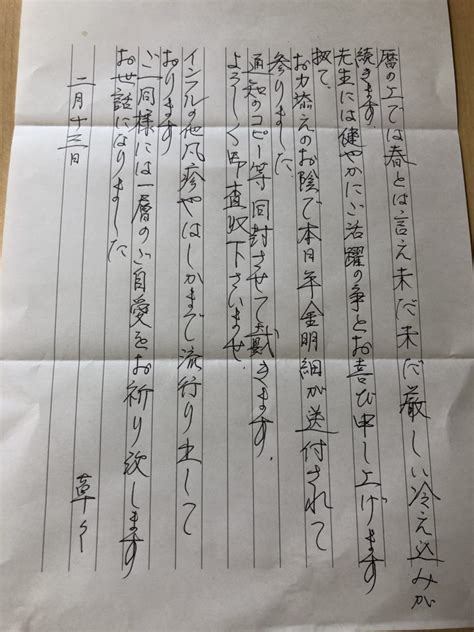 暦の上では春とは言え未だ未だ厳しい冷え込みが
続きます。
先生には健やかにご活躍の事とお喜び申し上げます
扨て、
お力添えのお陰で本日年金明細が送付されて
参りました。
通知のコピー等同封させて戴きます。
よろしく御査収下さいませ。
インフルの他風疹やはしかまで流行り出して
おります
ご一同様には一層のご自愛をお祈り致します
お世話になりました
二月十三日
草々